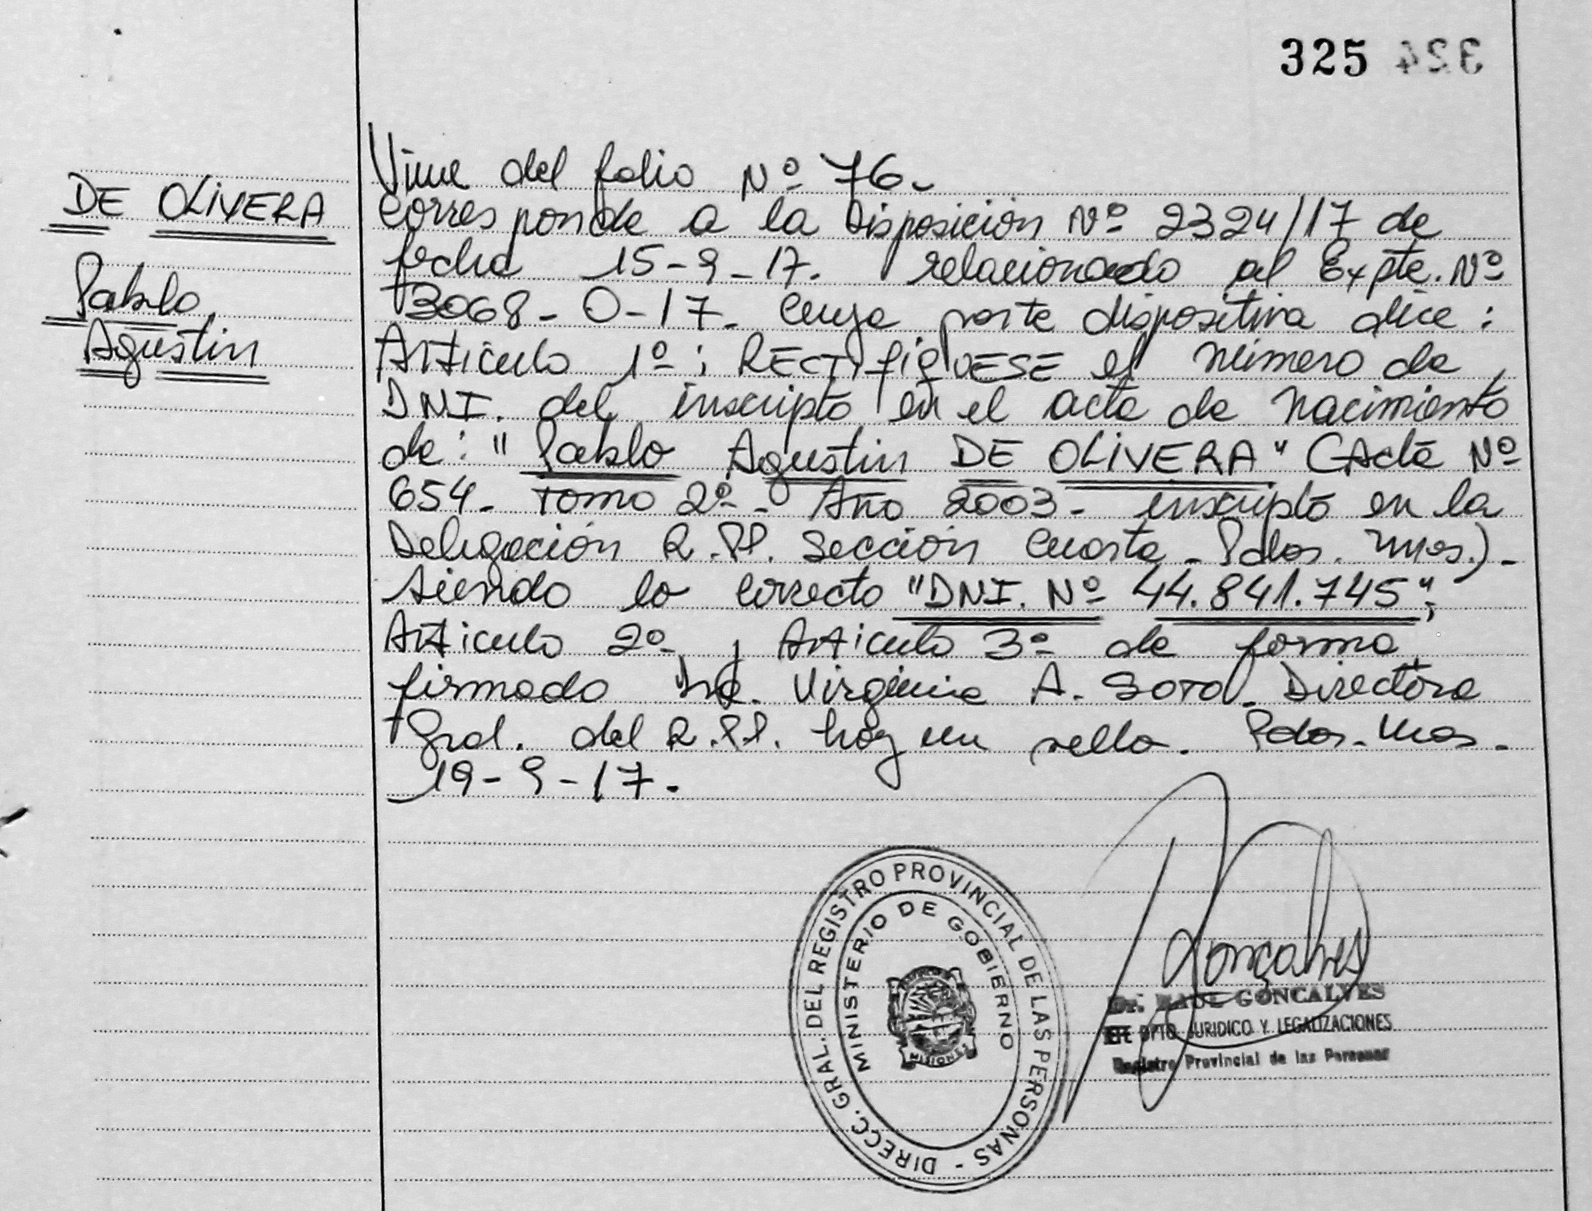 325 324
DE OLIVERA
Pablo
Agustin
Viene del folio Nº 76.-
Corresponde a la Disposición Nº 2324/17 de
fecha 15-9-17. relacionado al Expte. Nº
3068- O-17- cuya parte dispositiva dice:
Artículo 1º: RECTIFIQUESE el número de
DNI. del inscripto en el acta de nacimiento
de: "Pablo Agustin DE OLIVERA" (Acta Nº
654- Tomo 2º- Año 2003- inscripto en la
Delegación R.PP. Sección Cuarta- Pdas. Mnes.)-
siendo lo correcto "DNI. Nº 44.841.745";
Artículo 2º y Artículo 3º de forma
firmado Dra. Virginia A. SOTO- Directora
Gral. del R.PP. hay un sello. Pdas. Mnes.
19-9-17.-
DIRECC. GRAL. DEL REGISTRO PROVINCIAL DE LAS PERSONAS -
MINISTERIO DE GOBIERNO
MISIONES
Goncalves
Dr. RAUL GONCALVES
DPTO JURIDICO Y LEGALIZACIONES
Registro Provincial de las Personas